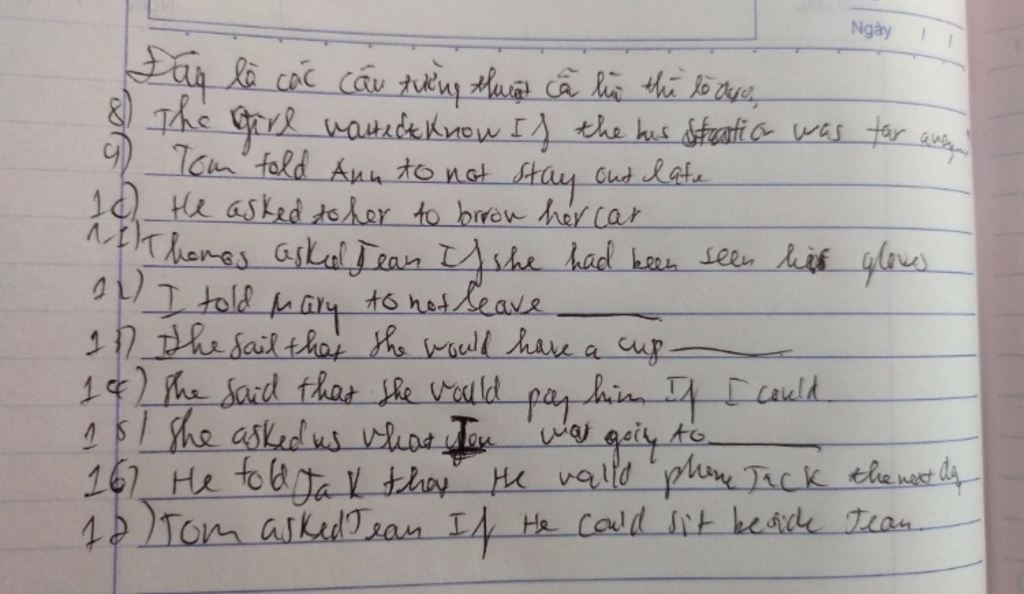 Ngày
Đây là các câu tường thuật cả thì
8) The girl wanted know If the bus was far away
9) Tom told Ann to not stay out late
10) He asked to her to brrow her car
11) Thomas asked Jean If she had been seen his gloves
12) I told Mary to not leave
13) She said that she would have a cup
14) She said that she would pay him If I could.
15) She asked us what was going to
16) He told Jack that He would phone Jack the next day
17) Tom asked Jean If He could sit beside Jean.